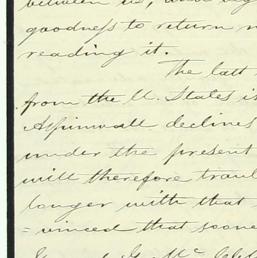 between us, and
goodness to return
reading it.
The last
from the U. States is
Aspinwall declines
under the present
will therefore
longer with that
=vinced that soone